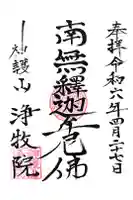 奉拝令和六年四月二十七日
南無釋迦牟尼佛
護山 浄牧院